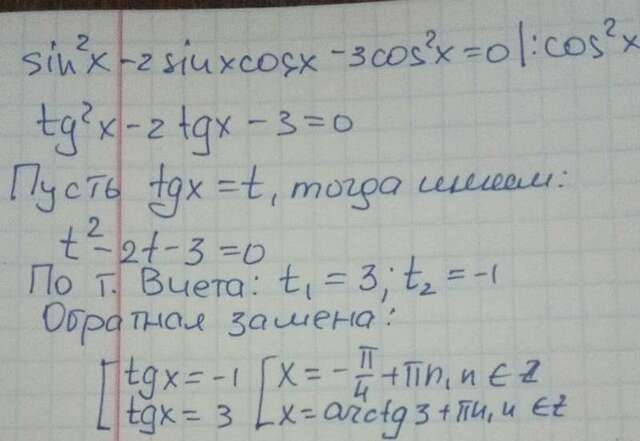 sin²x - 2 sinxcosx - 3cos²x = 0 |: cos²x
tg²x - 2 tgx - 3 = 0
Пусть tgx = t, тогда имеем:
t² - 2t - 3 = 0
По т. Виета: t₁ = 3; t₂ = -1
Обратная замена:
[ tgx = -1 [ x = -π/4 + πn, n ∈ Z
tgx = 3 x = arctg3 + πn, n ∈ Z